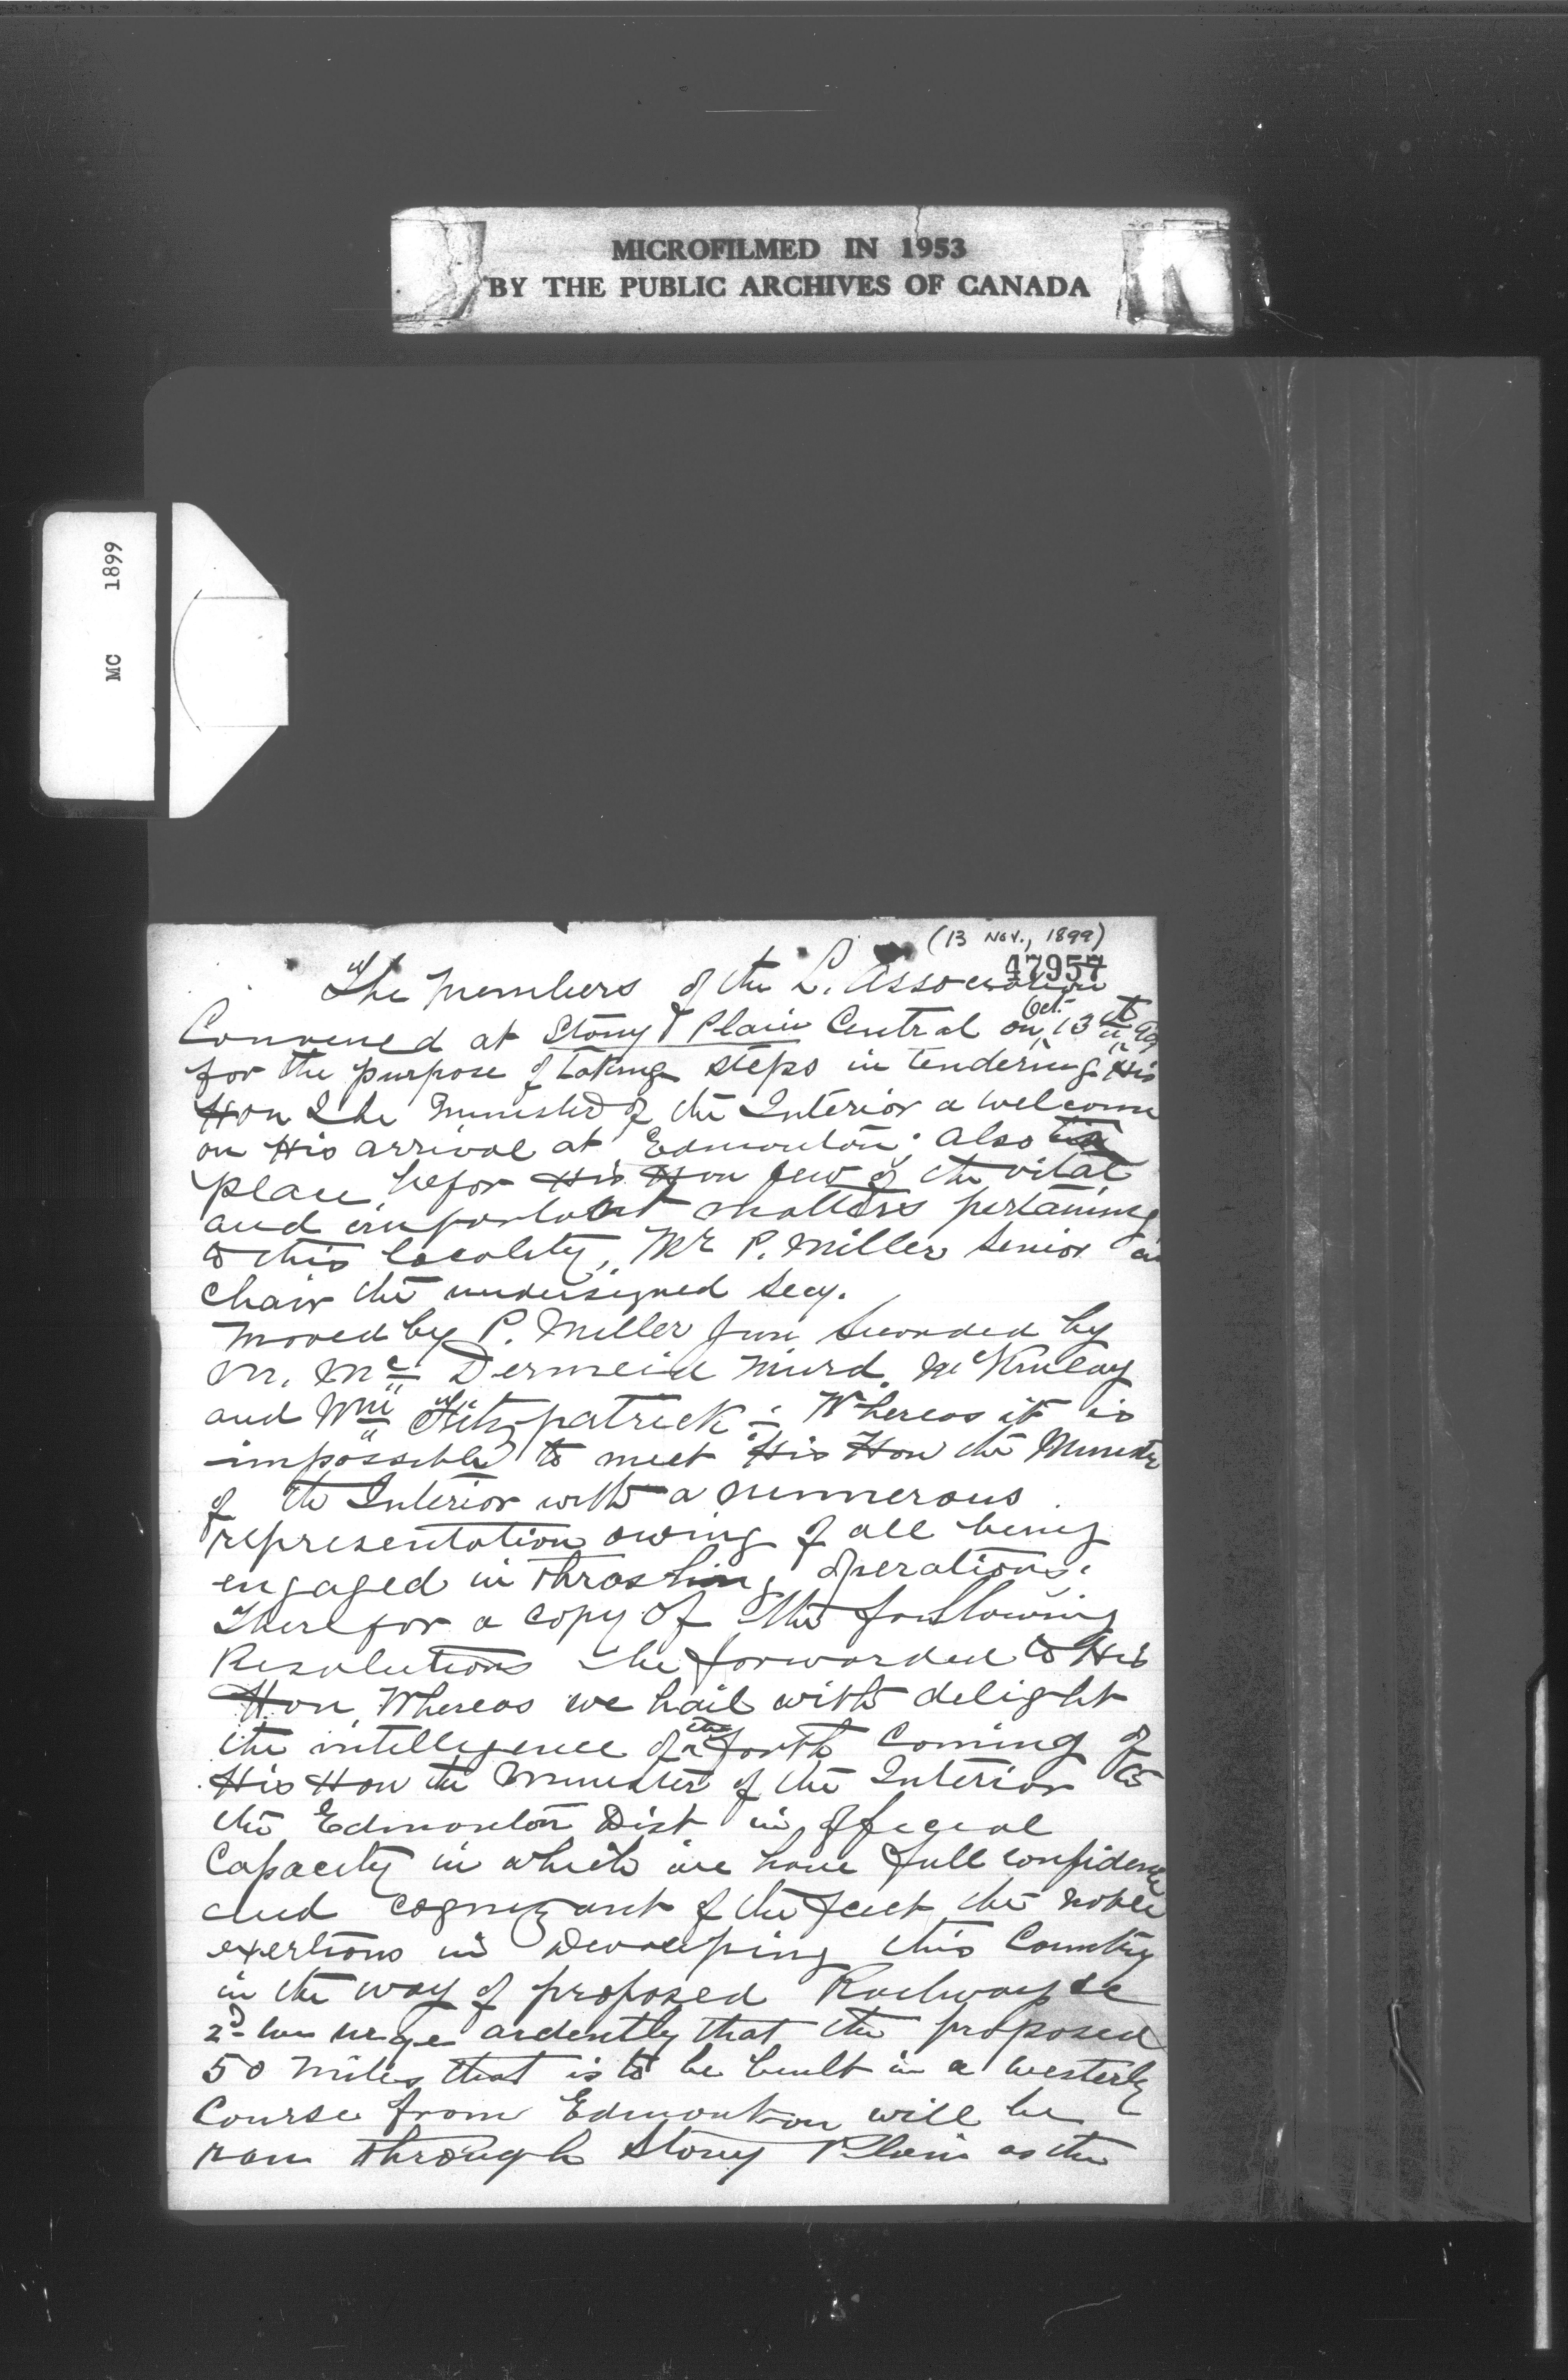 MICROFILMED IN 1953
BY THE PUBLIC ARCHIVES OF CANADA
MC 1899
(13 Nov., 1899)
47957
The Members of the L. Association
Convened at Stony Plain Central on Oct. 13th 99
for the purpose of taking steps in tendering His
Hon The Minister of the Interior a welcome
on His arrival at Edmonton; also
place befor His Hon few of the vital
and important matters pertaining
to this locality, Mr P. Miller Senior in
chair the undersigned Secy.
Moved by P. Miller Jun Seconded by
M. Mc Dermeid Murd. McKinlay
and Wm Fitzpatrick:- Whereas it is
impossible to meet His Hon the Minister
of the Interior with a numerous
representation owing of all being
engaged in thrashing operations.
Therefor a copy of the following
Resolutions be forwarded to His
Hon. Whereas we hail with delight
the intelligence of the forth coming of
His Hon the Minister of the Interior to
the Edmonton Dist in offecial
Capacity in which we have full confidence
and cognizant of the fact the noble
exertions in Developing this Country
in the way of proposed Railways &c
2d we urge ardently that the proposed
50 miles that is to be built in a westerly
Course from Edmonton will be
ran through Stony Plain as the